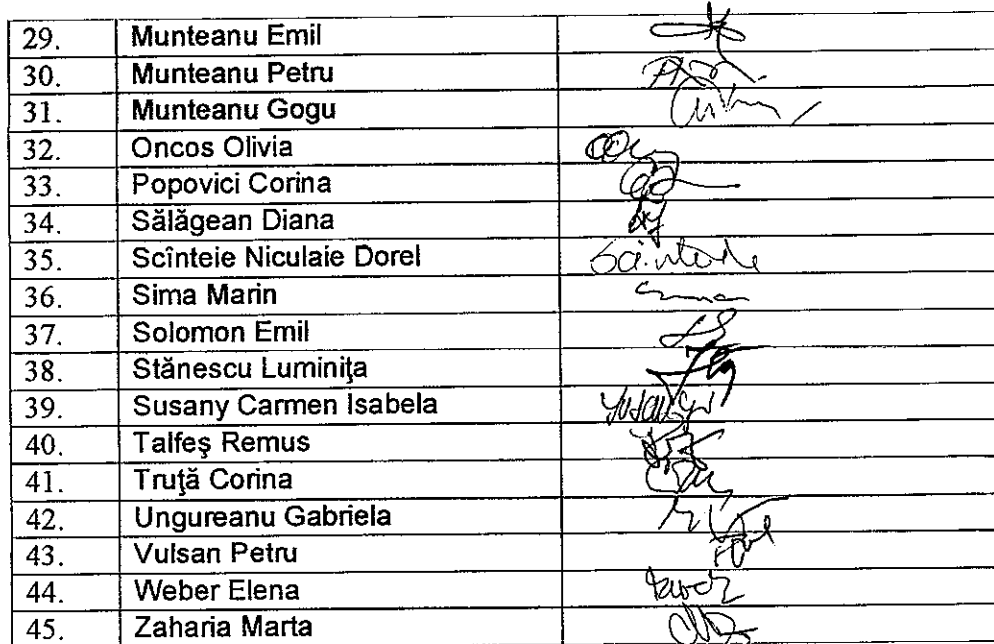 29. Munteanu Emil
30. Munteanu Petru
31. Munteanu Gogu
32. Oncos Olivia
33. Popovici Corina
34. Sălăgean Diana
35. Scînteie Niculaie Dorel
36. Sima Marin
37. Solomon Emil
38. Stănescu Luminiţa
39. Susany Carmen Isabela
40. Talfeş Remus
41. Truţă Corina
42. Ungureanu Gabriela
43. Vulsan Petru
44. Weber Elena
45. Zaharia Marta